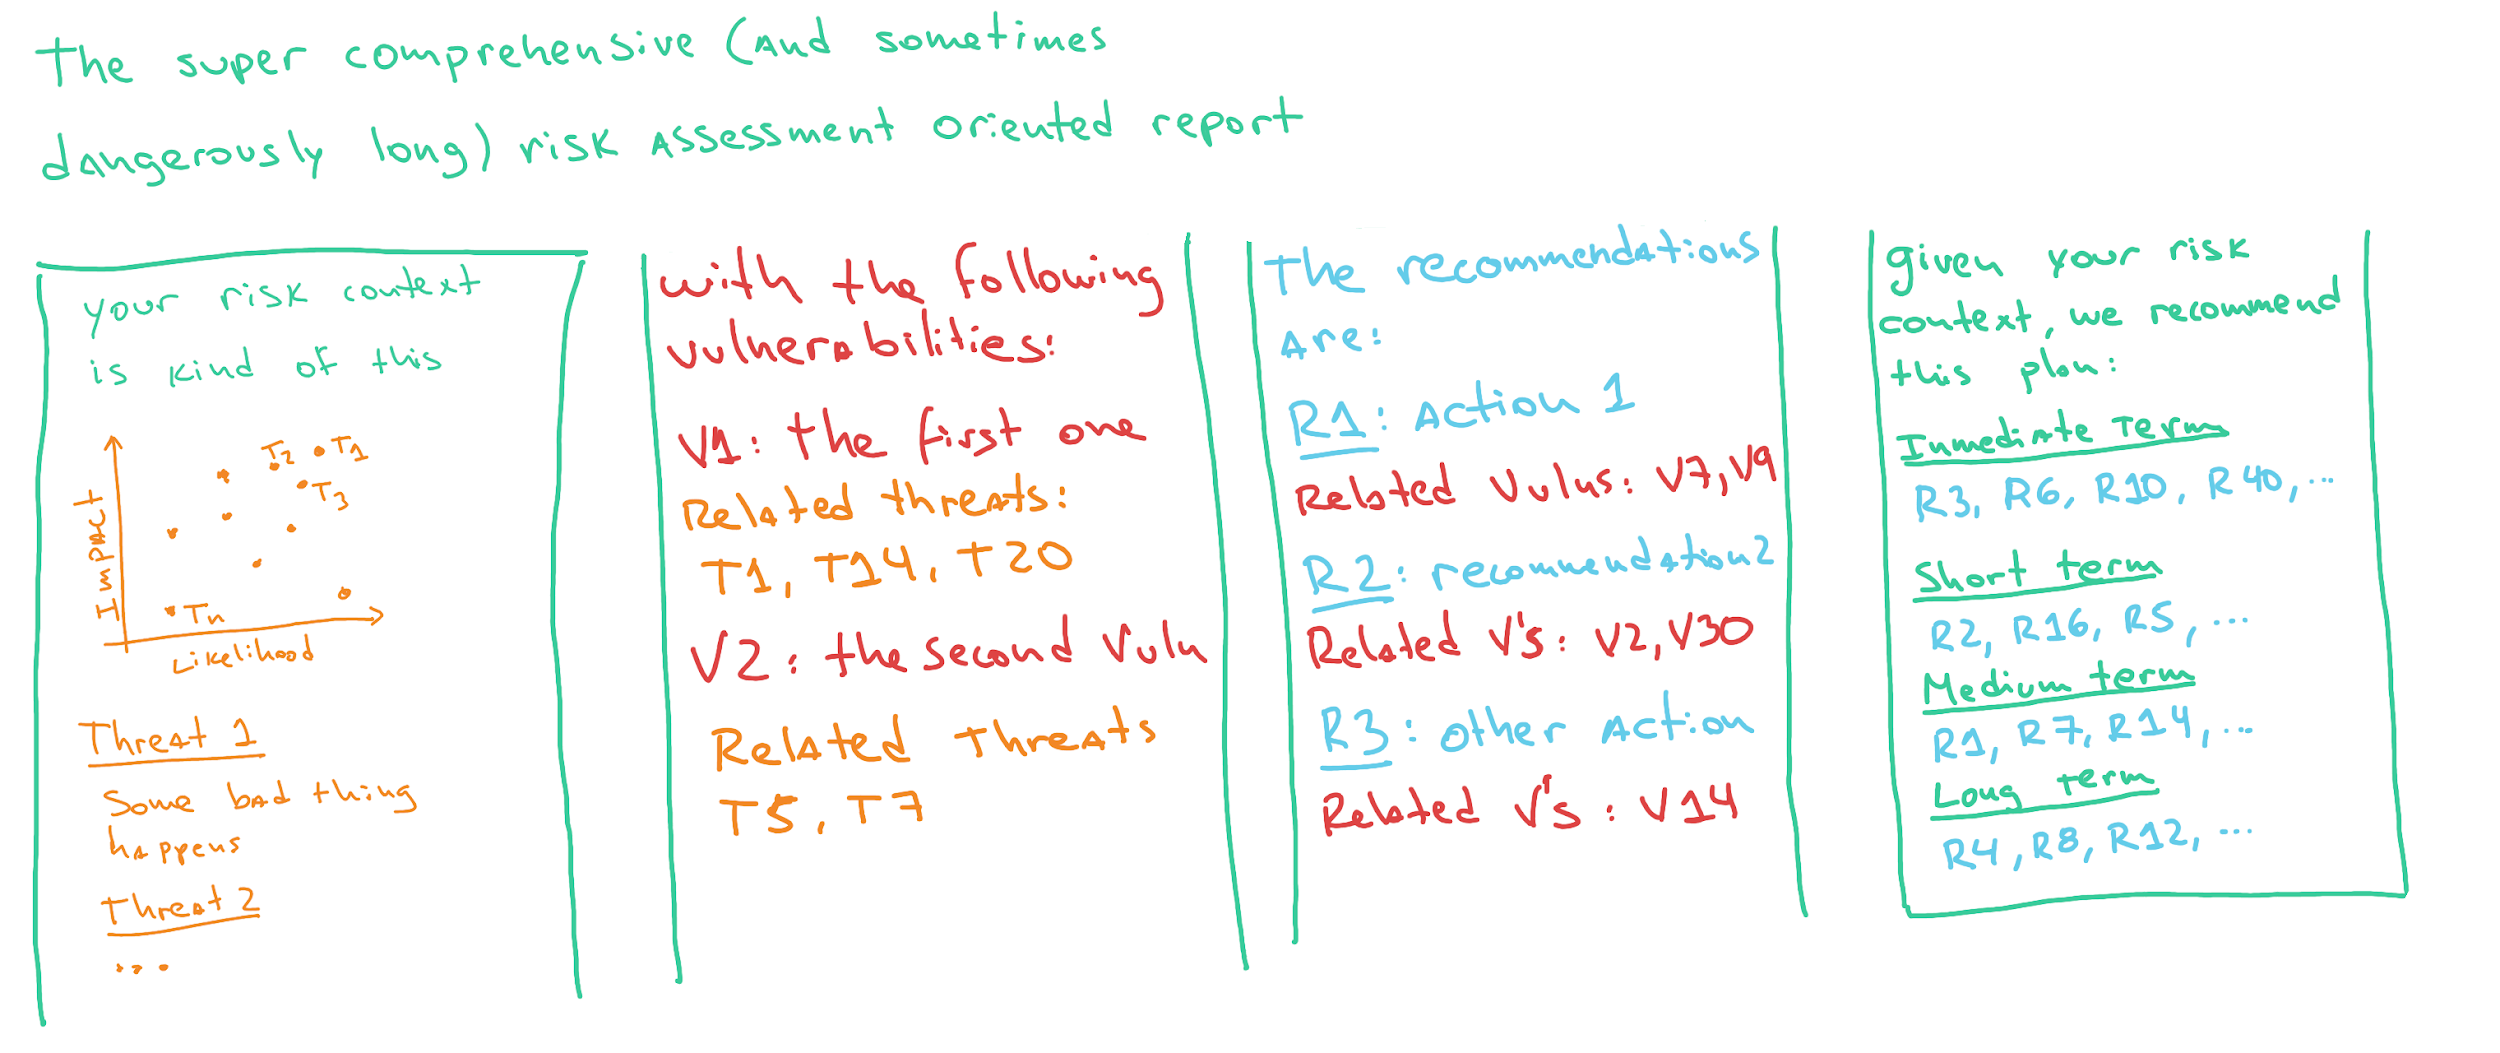 The super comprehensive (and sometimes
dangerously long) risk assessment oriented report
your risk context
is kind of this
Impact
T2
T1
T3
Tn
Likelihood
Threat 1
Some bad thing
happens
Threat 2
...
with the following
vulnerabilities:
V1: the first one
Related threats:
T1, T14, T20
V2: the second vuln
Related threats
T5, T7
The recommendations
are:
R1: Action 1
Related vulns: V7, V9
R2: recommendation 2
Related V's: V2, V30
R3: other action
Related V's: V14
given your risk
context, we recommend
this plan:
Inmediate Term
R3, R6, R10, R40, ...
Short term
R2, R16, R5, ...
Medium term
R1, R7, R14, ...
Long term
R4, R8, R12, ...